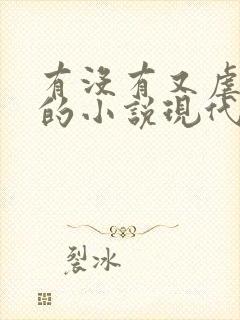 有没有又虐
的小说现代
裂冰